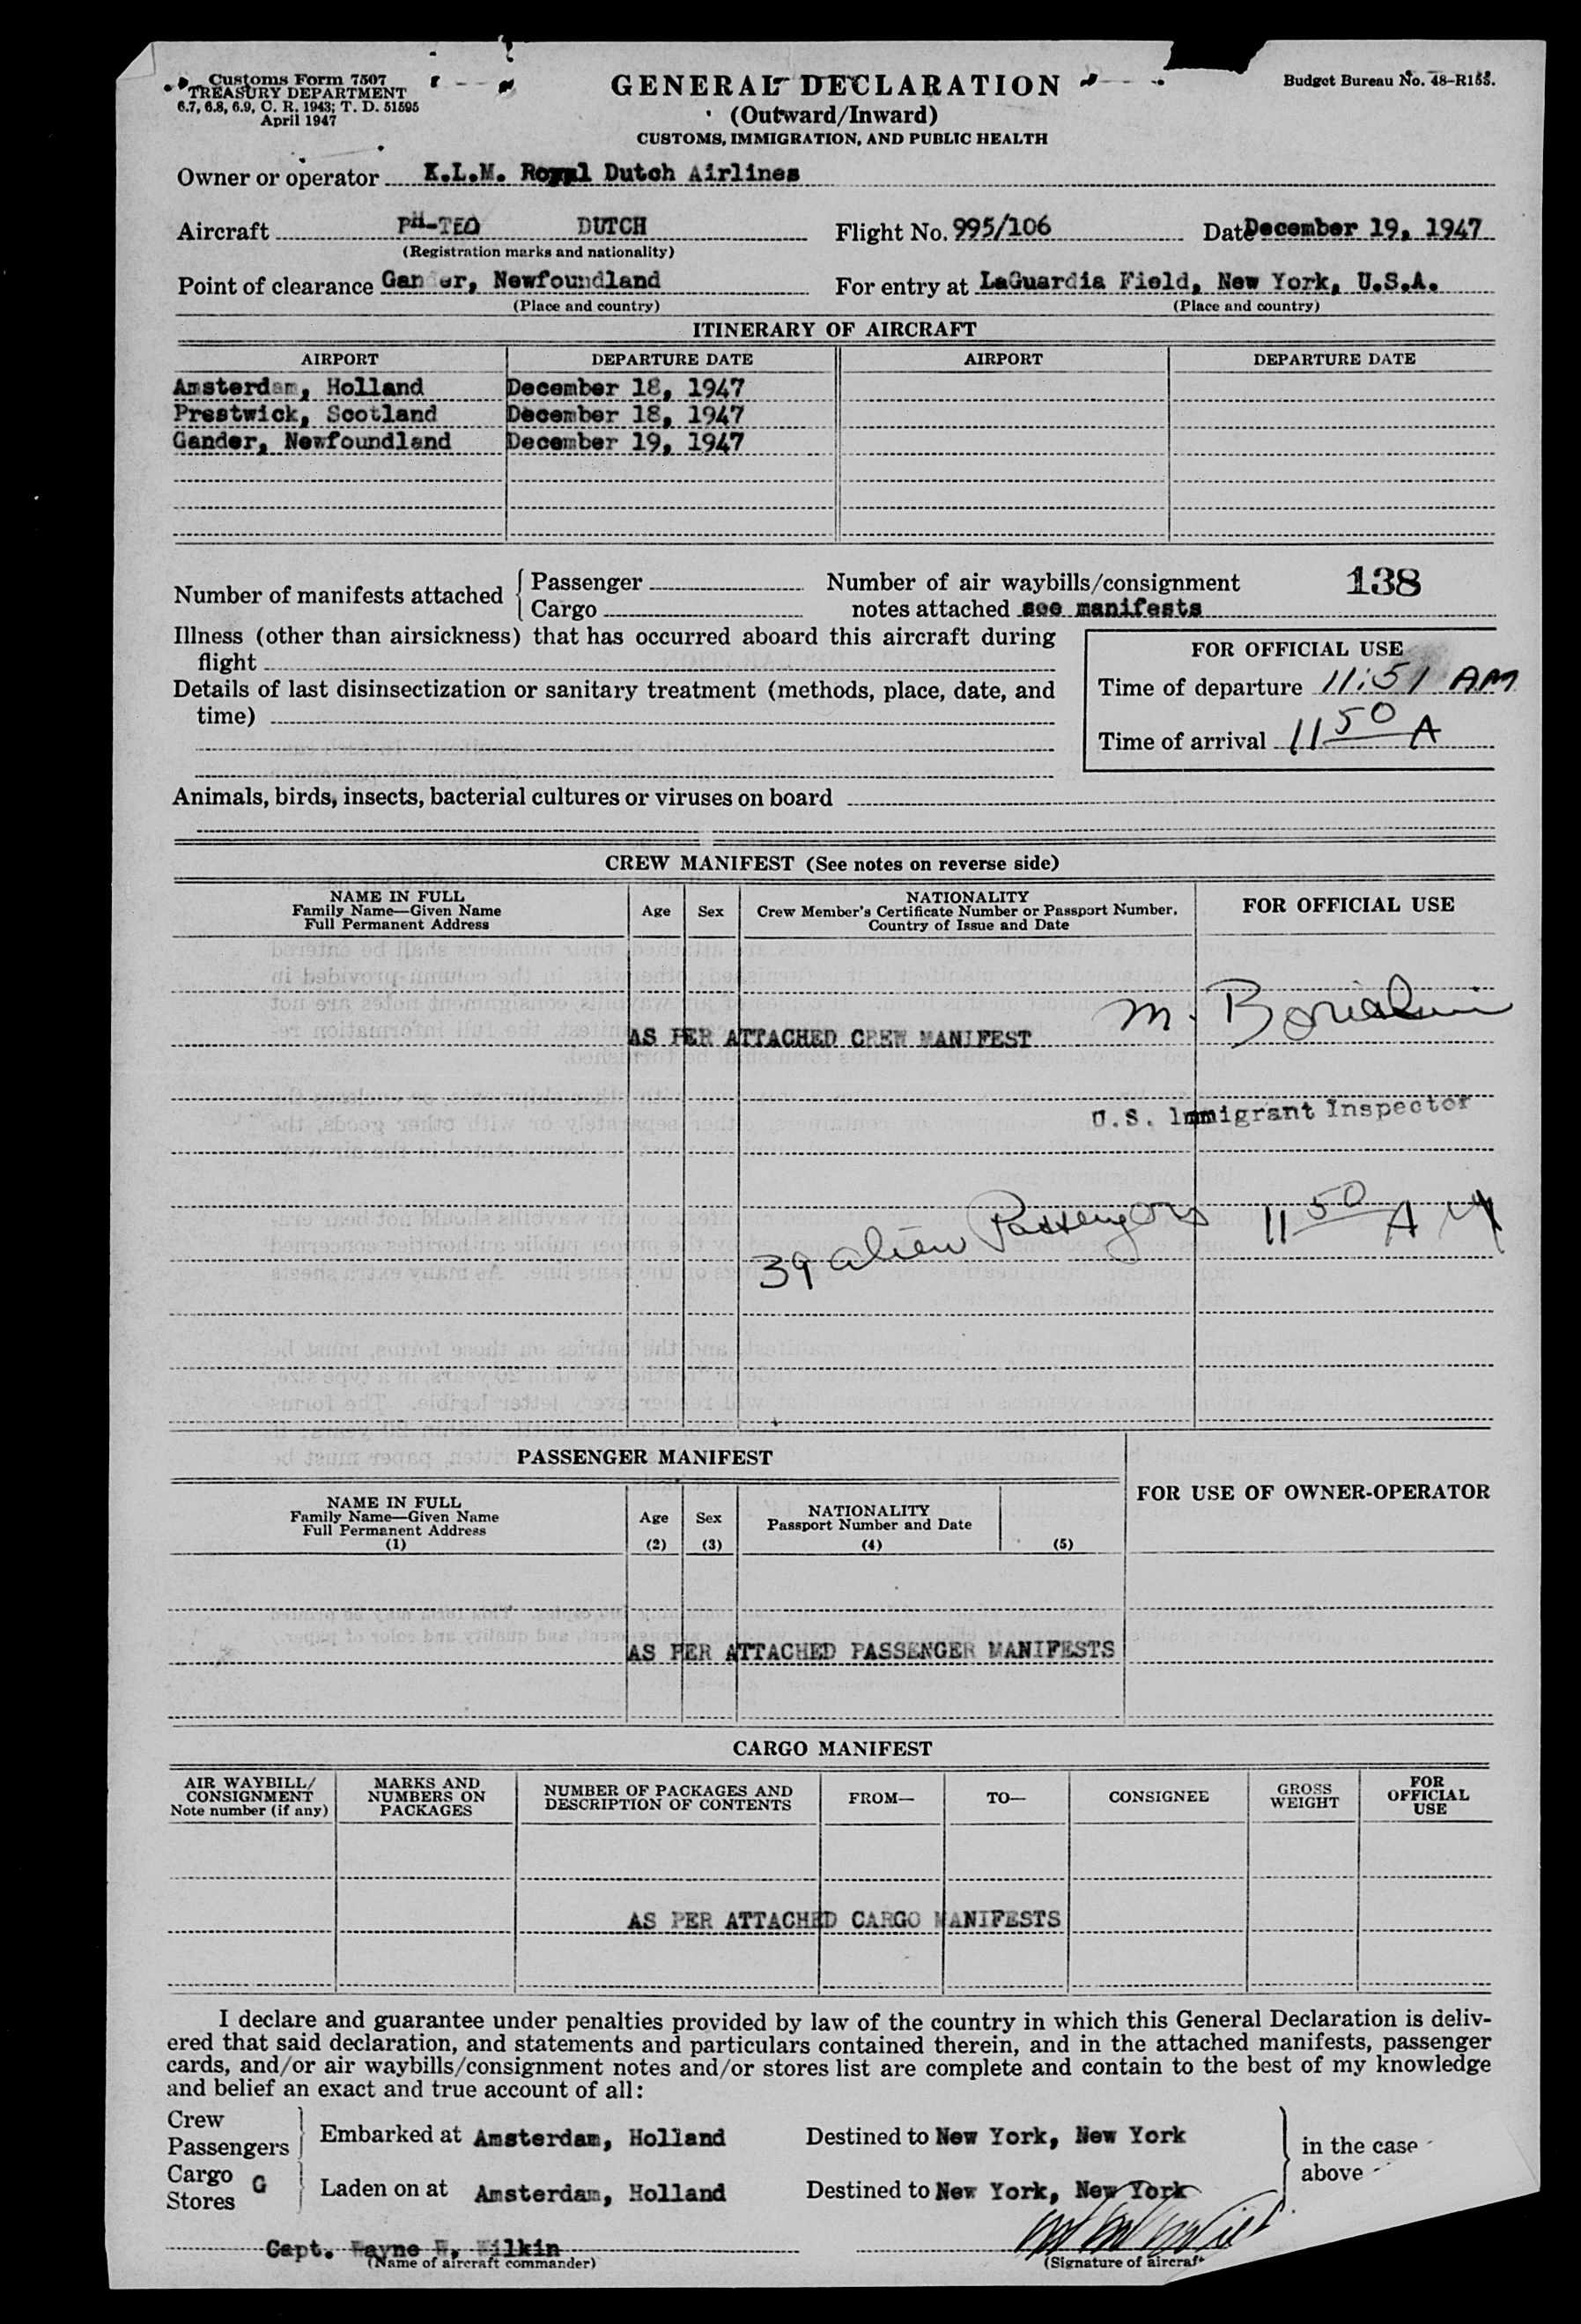 Customs Form 7507
TREASURY DEPARTMENT
6.7, 6.8, 6.9, C. R. 1943; T. D. 51595
April 1947
GENERAL DECLARATION
(Outward/Inward)
CUSTOMS, IMMIGRATION, AND PUBLIC HEALTH
Budget Bureau No. 48-R155.
Owner or operator K.L.M. Royal Dutch Airlines
Aircraft PH-TEO DUTCH Flight No. 995/106 Date December 19, 1947
(Registration marks and nationality)
Point of clearance Gander, Newfoundland For entry at LaGuardia Field, New York, U.S.A.
(Place and country) (Place and country)
ITINERARY OF AIRCRAFT
AIRPORT DEPARTURE DATE AIRPORT DEPARTURE DATE
Amsterdam, Holland December 18, 1947
Prestwick, Scotland December 18, 1947
Gander, Newfoundland December 19, 1947
Number of manifests attached { Passenger
Cargo
Number of air waybills/consignment
notes attached see manifests
138
Illness (other than airsickness) that has occurred aboard this aircraft during
flight
Details of last disinsectization or sanitary treatment (methods, place, date, and
time)
FOR OFFICIAL USE
Time of departure 11:51 AM
Time of arrival 11 50 A
Animals, birds, insects, bacterial cultures or viruses on board
CREW MANIFEST (See notes on reverse side)
NAME IN FULL
Family Name—Given Name
Full Permanent Address
Age
Sex
NATIONALITY
Crew Member's Certificate Number or Passport Number,
Country of Issue and Date
FOR OFFICIAL USE
M.
AS PER ATTACHED CREW MANIFEST
U.S. Immigrant Inspector
39 alien Passengers 11 50 A M
PASSENGER MANIFEST
FOR USE OF OWNER-OPERATOR
NAME IN FULL
Family Name—Given Name
Full Permanent Address
(1)
Age
(2)
Sex
(3)
NATIONALITY
Passport Number and Date
(4)
(5)
AS PER ATTACHED PASSENGER MANIFESTS
CARGO MANIFEST
AIR WAYBILL/
CONSIGNMENT
Note number (if any)
MARKS AND
NUMBERS ON
PACKAGES
NUMBER OF PACKAGES AND
DESCRIPTION OF CONTENTS
FROM—
TO—
CONSIGNEE
GROSS
WEIGHT
FOR
OFFICIAL
USE
AS PER ATTACHED CARGO MANIFESTS
I declare and guarantee under penalties provided by law of the country in which this General Declaration is deliv-
ered that said declaration, and statements and particulars contained therein, and in the attached manifests, passenger
cards, and/or air waybills/consignment notes and/or stores list are complete and contain to the best of my knowledge
and belief an exact and true account of all:
Crew
Passengers } Embarked at Amsterdam, Holland Destined to New York, New York
Cargo G
Stores } Laden on at Amsterdam, Holland Destined to New York, New York
} in the case
above
Capt. Wayne W. Wilkin
(Name of aircraft commander) (Signature of aircraft